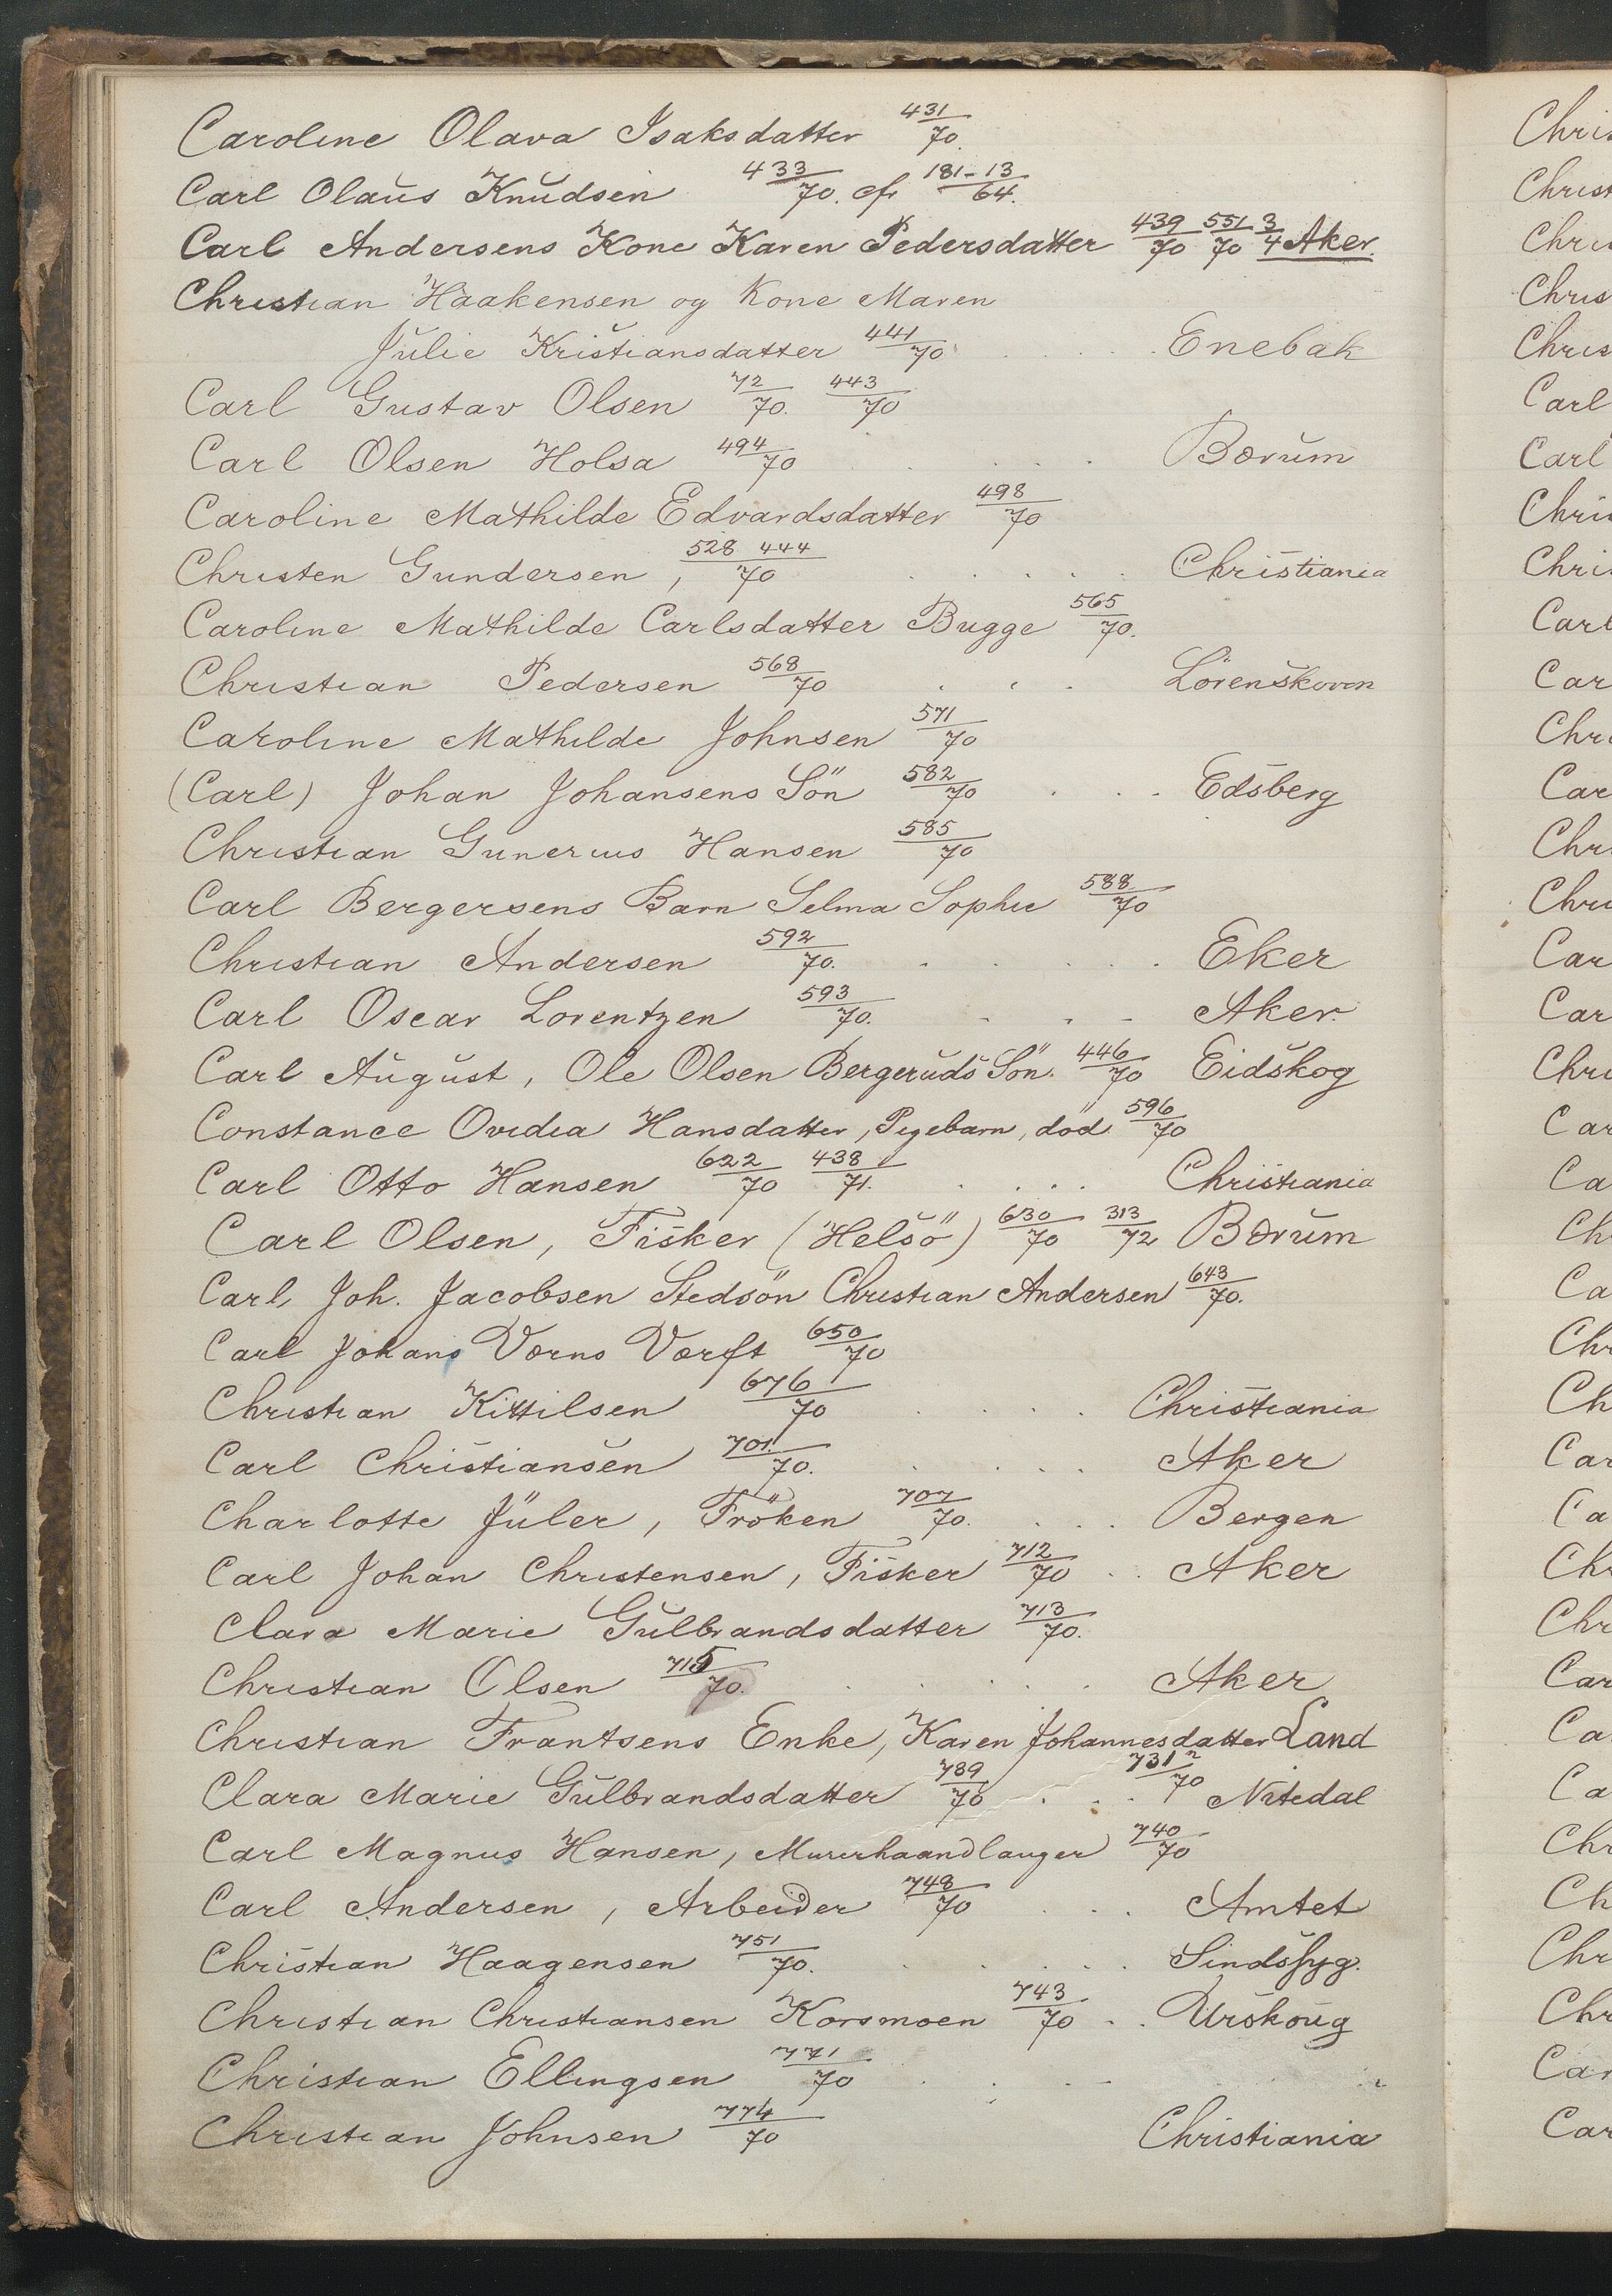 Caroline Olava Isaksdatter 431/70.
Carl Olaus Knudsen 433/70. cfr 181-13/64.
Carl Andersens Kone Karen Pedersdatter 439/70 551/70 3/4 Aker.
Christian Haakensen og Kone Maren
Julie Kristiansdatter 441/70 . . . . Enebak
Carl Gustav Olsen 72/70. 443/70
Carl Olsen Holsa 494/70 . . . . Bærum
Caroline Mathilde Edvardsdatter 498/70
Christen Gundersen, 528 444/70 . . . . . Christiania
Caroline Mathilde Carlsdatter Bugge 565/70.
Christian Pedersen 568/70 . . . Lörenskoven
Caroline Mathilde Johnsen 571/70
(Carl) Johan Johansens Sön 582/70 . . . Edsberg
Christian Gunerius Hansen 585/70
Carl Bergersens Barn Selma Sophie 588/70
Christian Andersen 592/70. . . . . . Eker
Carl Oscar Lorentzen 593/70. . . . Aker.
Carl August, Ole Olsen Bergeruds Sön. 446/70 Eidskog
Constance Ovidia Hansdatter, Pigebarn, död 596/70
Carl Otto Hansen 622/70 438/71. . . . . Christiania
Carl Olsen, Fisker (Helsö) 630/70 313/72 Bærum
Carl Joh. Jacobsen Stedsön Christian Andersen 643/70.
Carl Johans Værns Værft 650/70
Christian Kittilsen 676/70 . . . . Christiania
Carl Christiansen 701/70. . . . . Aker
Charlotte Jüler, Fröken 707/70. . . . Bergen
Carl Johan Christensen, Fisker 712/70 . . Aker
Clara Marie Gulbrandsdatter 713/70.
Christian Olsen 715/70. . . . . . Aker
Christian Frantsens Enke, Karen Johannesdatter Land
731/70
Clara Marie Gulbrandsdatter 789/70 . . . Nitedal
Carl Magnus Hansen, Murerhaandlanger 740/70
Carl Andersen, Arbeider 748/70 . . . Amtet
Christian Haagensen 751/70. . . . . . Sindssyg.
Christian Christiansen Korsmoen 743/70 . . Urskoug
Christian Ellingsen 771/70 . . .
Christian Johnsen 774/70 Christiania
Chris
Christ
Chri
Chris
Chris
Carl
Carl
Chris
Chris
Carl
Car
Chri
Car
Chri
Chri
Car
Car
Chri
Car
Ca
Ch
Ca
Chr
Ch
Car
Ca
Chr
Chr
Car
Ca
Ca
Chr
Ch
Chr
Chr
Car
Car